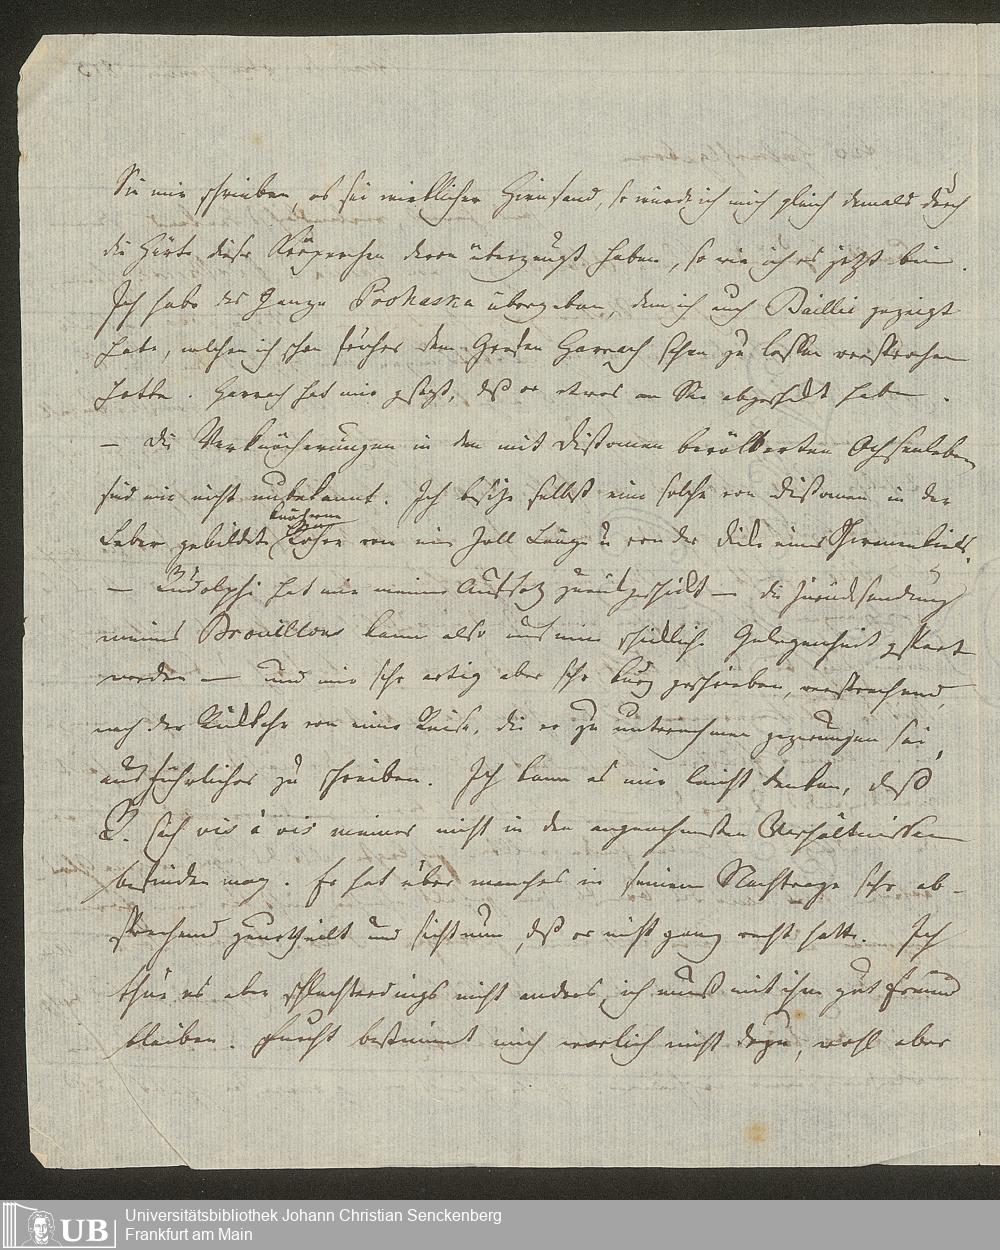 Sie mir schrieben, es sei wirklicher Hirnsand, so würde ich mich gleich damals durch
die Härte dieser Körperchen davon überzeugt haben, so wie ich es jetzt bin.
Ich habe das Ganze Prohaska übergeben, dem ich auch Baillie gezeigt
habe, welchen ich schon früher dem Grafen Harrach sehen zu lassen versprochen
hatte. Harrach hat mir gesagt, daß er etwas an Sie abgeschikt habe.
— Die Verknöcherungen in den mit Distomen bevölkerten Ochsenlebern
sind mir nicht unbekannt. Ich besitze selbst eine solche von Distomen in der
Leber gebildete knöcherne Röhre von ein Zoll Länge u von der Dicke eines Federkiels.
— Rudolphi hat mir meinen Aufsatz zurükgeschikt — die Zurüksendung
meines Brouillons kann also auf eine schickliche Gelegenheit gespart
werden — und mir sehr artig aber sehr kurz geschrieben, versprechend,
nach der Rükkehr von einer Reise, die er zu unternehmen gezwungen sei,
ausführlicher zu schreiben. Ich kann es mir leicht denken, daß
R. sich vis à vis meiner nicht in den angenehmsten Verhältnissen
befinden mag. Er hat über manches in seinem Nachtrage sehr ab-
sprechend geurtheilt und sieht nun, daß er nicht ganz recht hatte. Ich
thue es aber schlechterdings nicht anders, ich muß mit ihm gut Freund
bleiben. Furcht bestimmt mich warlich nicht dazu, wohl aber
UB
Universitätsbibliothek Johann Christian Senckenberg
Frankfurt am Main